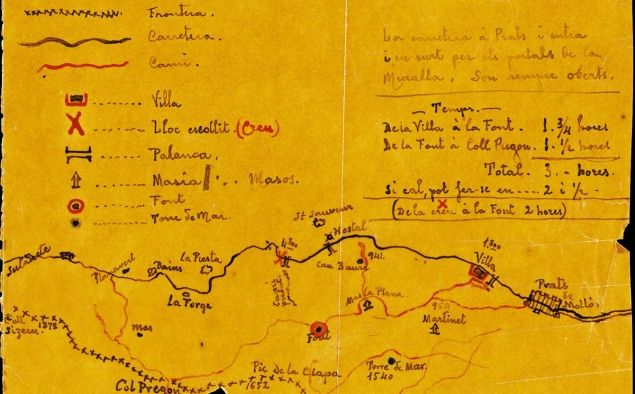 Frontera.
Carretera.
Camí.
Villa
Lloc escollit (Creu)
Palanca.
Masía . . Masos.
Font
Torre de Mar.
La carretera à Prats i entra
i en surt per els portals de la
Muralla, Son sempre oberts.
Temps.
De la Villa à la Font. 1. 3/4 hores
De la Font à Coll Pregon. 1. 1/2 hores
Total. 3. - hores.
Si cal, pot fer-se en .... 2 i 1/2 -
(De la creu à la Font 2 hores)
St Sauveur
Hostal
La Presta
Bains
La Forge
Can Daure
941.
Villa
Prats
de
Mollò.
Mas la Plana
954
Martinet
Mas
Font
Coll
1878
Pic De la Clapa
1652
Torre de Mar.
1540
Col Pregon